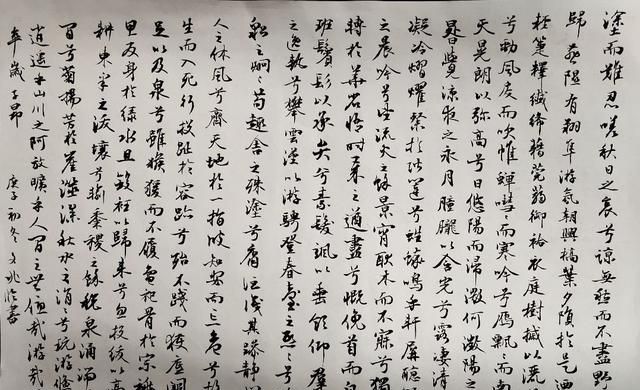 塗而難忍嗟秋日之哀兮諒無愁而不盡野
歸燕隰有翔隼游氣朝興槁葉夕隕於是迺
輕箑釋纖絺藉莞蒻御袷衣庭樹槭以灑
兮勁風戾而吹帷蟬嘒而寒吟兮雁飄而南
天晃朗以彌高兮日悠陽而浸微何微陽之
晷覺涼夜之永月朣朧以含光兮露淒清
凝冷熠燿粲於階闥兮蟋蟀鳴乎軒屏聽
之晨吟兮望流火之餘景宵耿介而不寐兮獨
轉於華省悟時歲之遒盡兮慨俛首而自
班鬢髟以承弁兮素髮颯以垂領仰群
之逸軌兮攀雲漢以游騁登春臺之熙兮
貂之炯苟趣舍之殊塗兮庸詎識其躁靜
人之休風兮齊天地於一指彼知安而忘危兮故
生而入死行投趾於容跡兮殆不踐而獲底闕
足以及泉兮雖猴猨而不履龜祀骨於宗祧
思反身於綠水且斂衽以歸來兮忽投紱以高
耕東皋之沃壤兮輸黍稷之餘稅泉涌湍
間兮菊揚芳於崖澨澡秋水之涓兮玩游鯈
逍遙乎山川之阿放曠乎人間之世優哉游哉
卒歲 子昂 庚子初冬 文兆临書